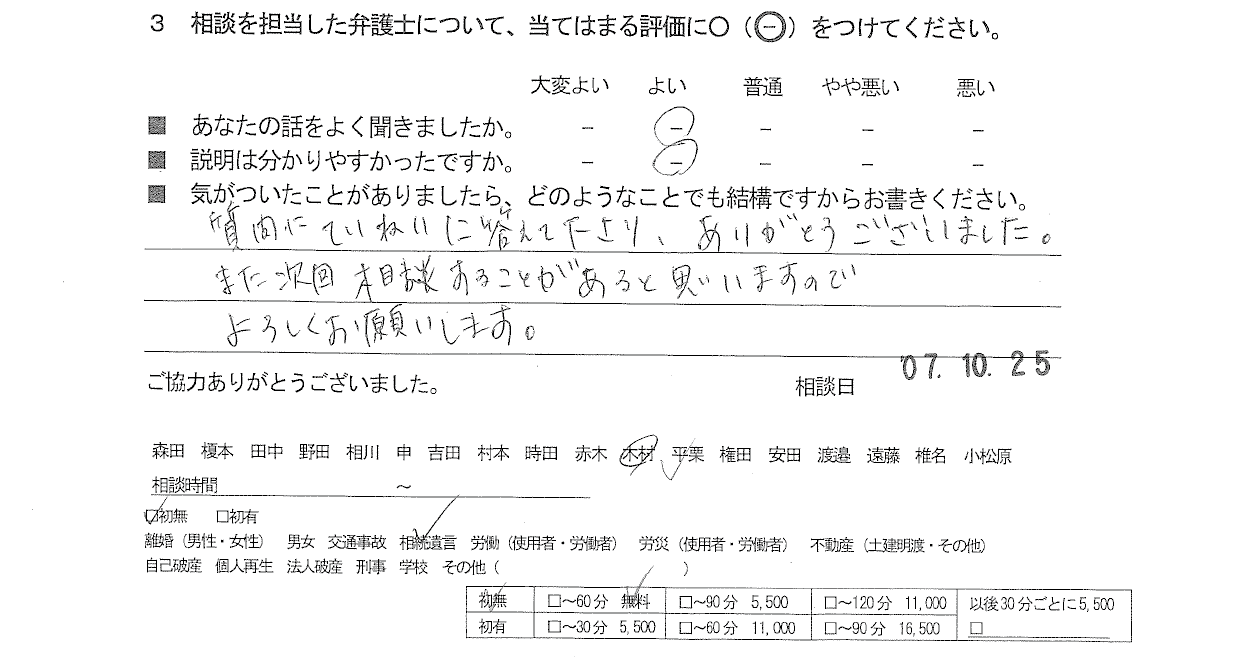 3 相談を担当した弁護士について、当てはまる評価に○（㊀）をつけてください。
大変よい よい 普通 やや悪い 悪い
■ あなたの話をよく聞きましたか。 － － － － －
■ 説明は分かりやすかったですか。 － － － － －
■ 気がついたことがありましたら、どのようなことでも結構ですからお書きください。
質問にていねいに答えて下さり、ありがとうございました。
また次回相談することがあると思いますので
よろしくお願いします。
ご協力ありがとうございました。 相談日 '07. 10. 25
森田 榎本 田中 野田 相川 申 吉田 村本 時田 赤木 木村 平栗 権田 安田 渡邉 遠藤 椎名 小松原
相談時間 ～
□初無 □初有
離婚（男性・女性） 男女 交通事故 相続遺言 労働（使用者・労働者） 労災（使用者・労働者） 不動産（土建明渡・その他）
自己破産 個人再生 法人破産 刑事 学校 その他（ ）
初無 □～60分 無料 □～90分 5,500 □～120分 11,000 以後30分ごとに5,500
初有 □～30分 5,500 □～60分 11,000 □～90分 16,500 □